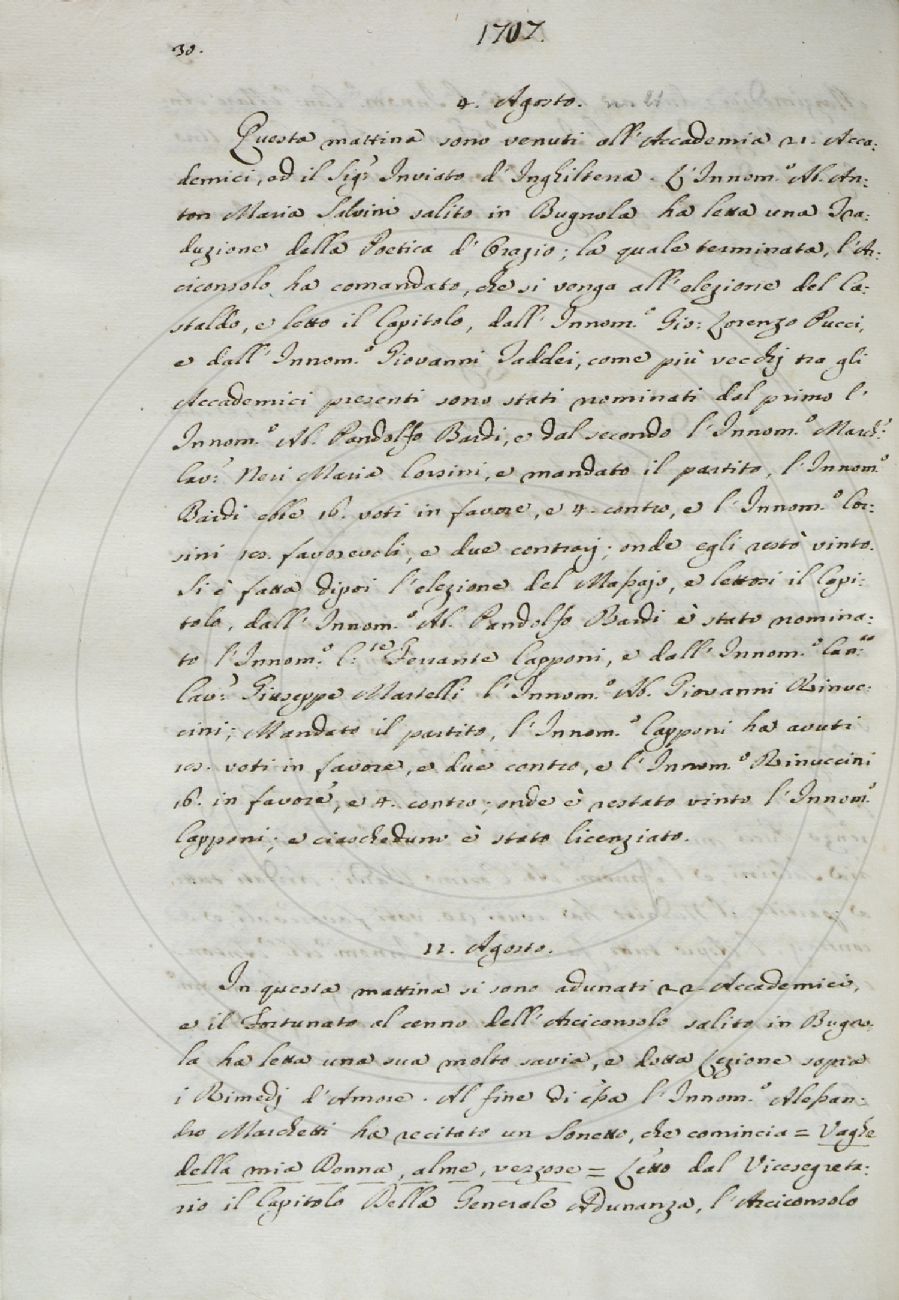 1707.
30.
4. Agosto.
Questa mattina sono venuti all'Accademia 21. Acca:
demici, ed il Sig.r Inviato d'Inghilterra. L'Innom.o Ab. An:
ton Maria Salvini salito in Bugnola ha letta una Tra:
duzione della Poetica d'Orazio; la quale terminata, l'Ar:
ciconsolo ha comandato, che si venga all'elezione del Ca:
staldo, e letto il Capitolo, dall'Innom.o Gio: Lorenzo Pucci,
e dall'Innom.o Giovanni Taddei, come più vecchj tra gli
Accademici presenti sono stati nominati dal primo l'
Innom.o Ab. Pandolfo Bardi, e dal secondo l'Innom.o March.e
Cav.r Neri Maria Corsini, e mandato il partito, l'Innom.o
Bardi ebbe 16. voti in favore, e 4. contro, e l'Innom.o Cor:
sini 18. favorevoli, e due contrarj; onde egli restò vinto.
Si è fatta dipoi l'elezione del Massajo, e lettosi il Capi:
tolo, dall'Innom.o Ab. Pandolfo Bardi è stato nomina:
to l'Innom.o C:te Ferrante Capponi, e dall'Innom.o Can.co
Cav.r Giuseppe Martelli l'Innom.o Ab. Giovanni Rinuc:
cini; Mandato il partito, l'Innom.o Capponi ha avuti
18. voti in favore, e due contro, e l'Innom.o Rinuccini
16. in favore, e 4. contro; onde è restato vinto l'Innom.o
Capponi; e ciascheduno è stato licenziato.
11. Agosto.
In questa mattina si sono adunati 22 Accademici,
e il Fortunato al cenno dell'Arciconsolo salito in Bugno:
la ha letta una sua molto savia, e dotta Lezione sopra
i Rimedj d'Amore. Al fine di essa l'Innom.o Alessan:
dro Marchetti ha recitato un Sonetto, che comincia = Vaghe
della mia Donna, alme, vezzose = Letto dal Vicesegreta:
rio il Capitolo Della Generale Adunanza, l'Arciconsolo